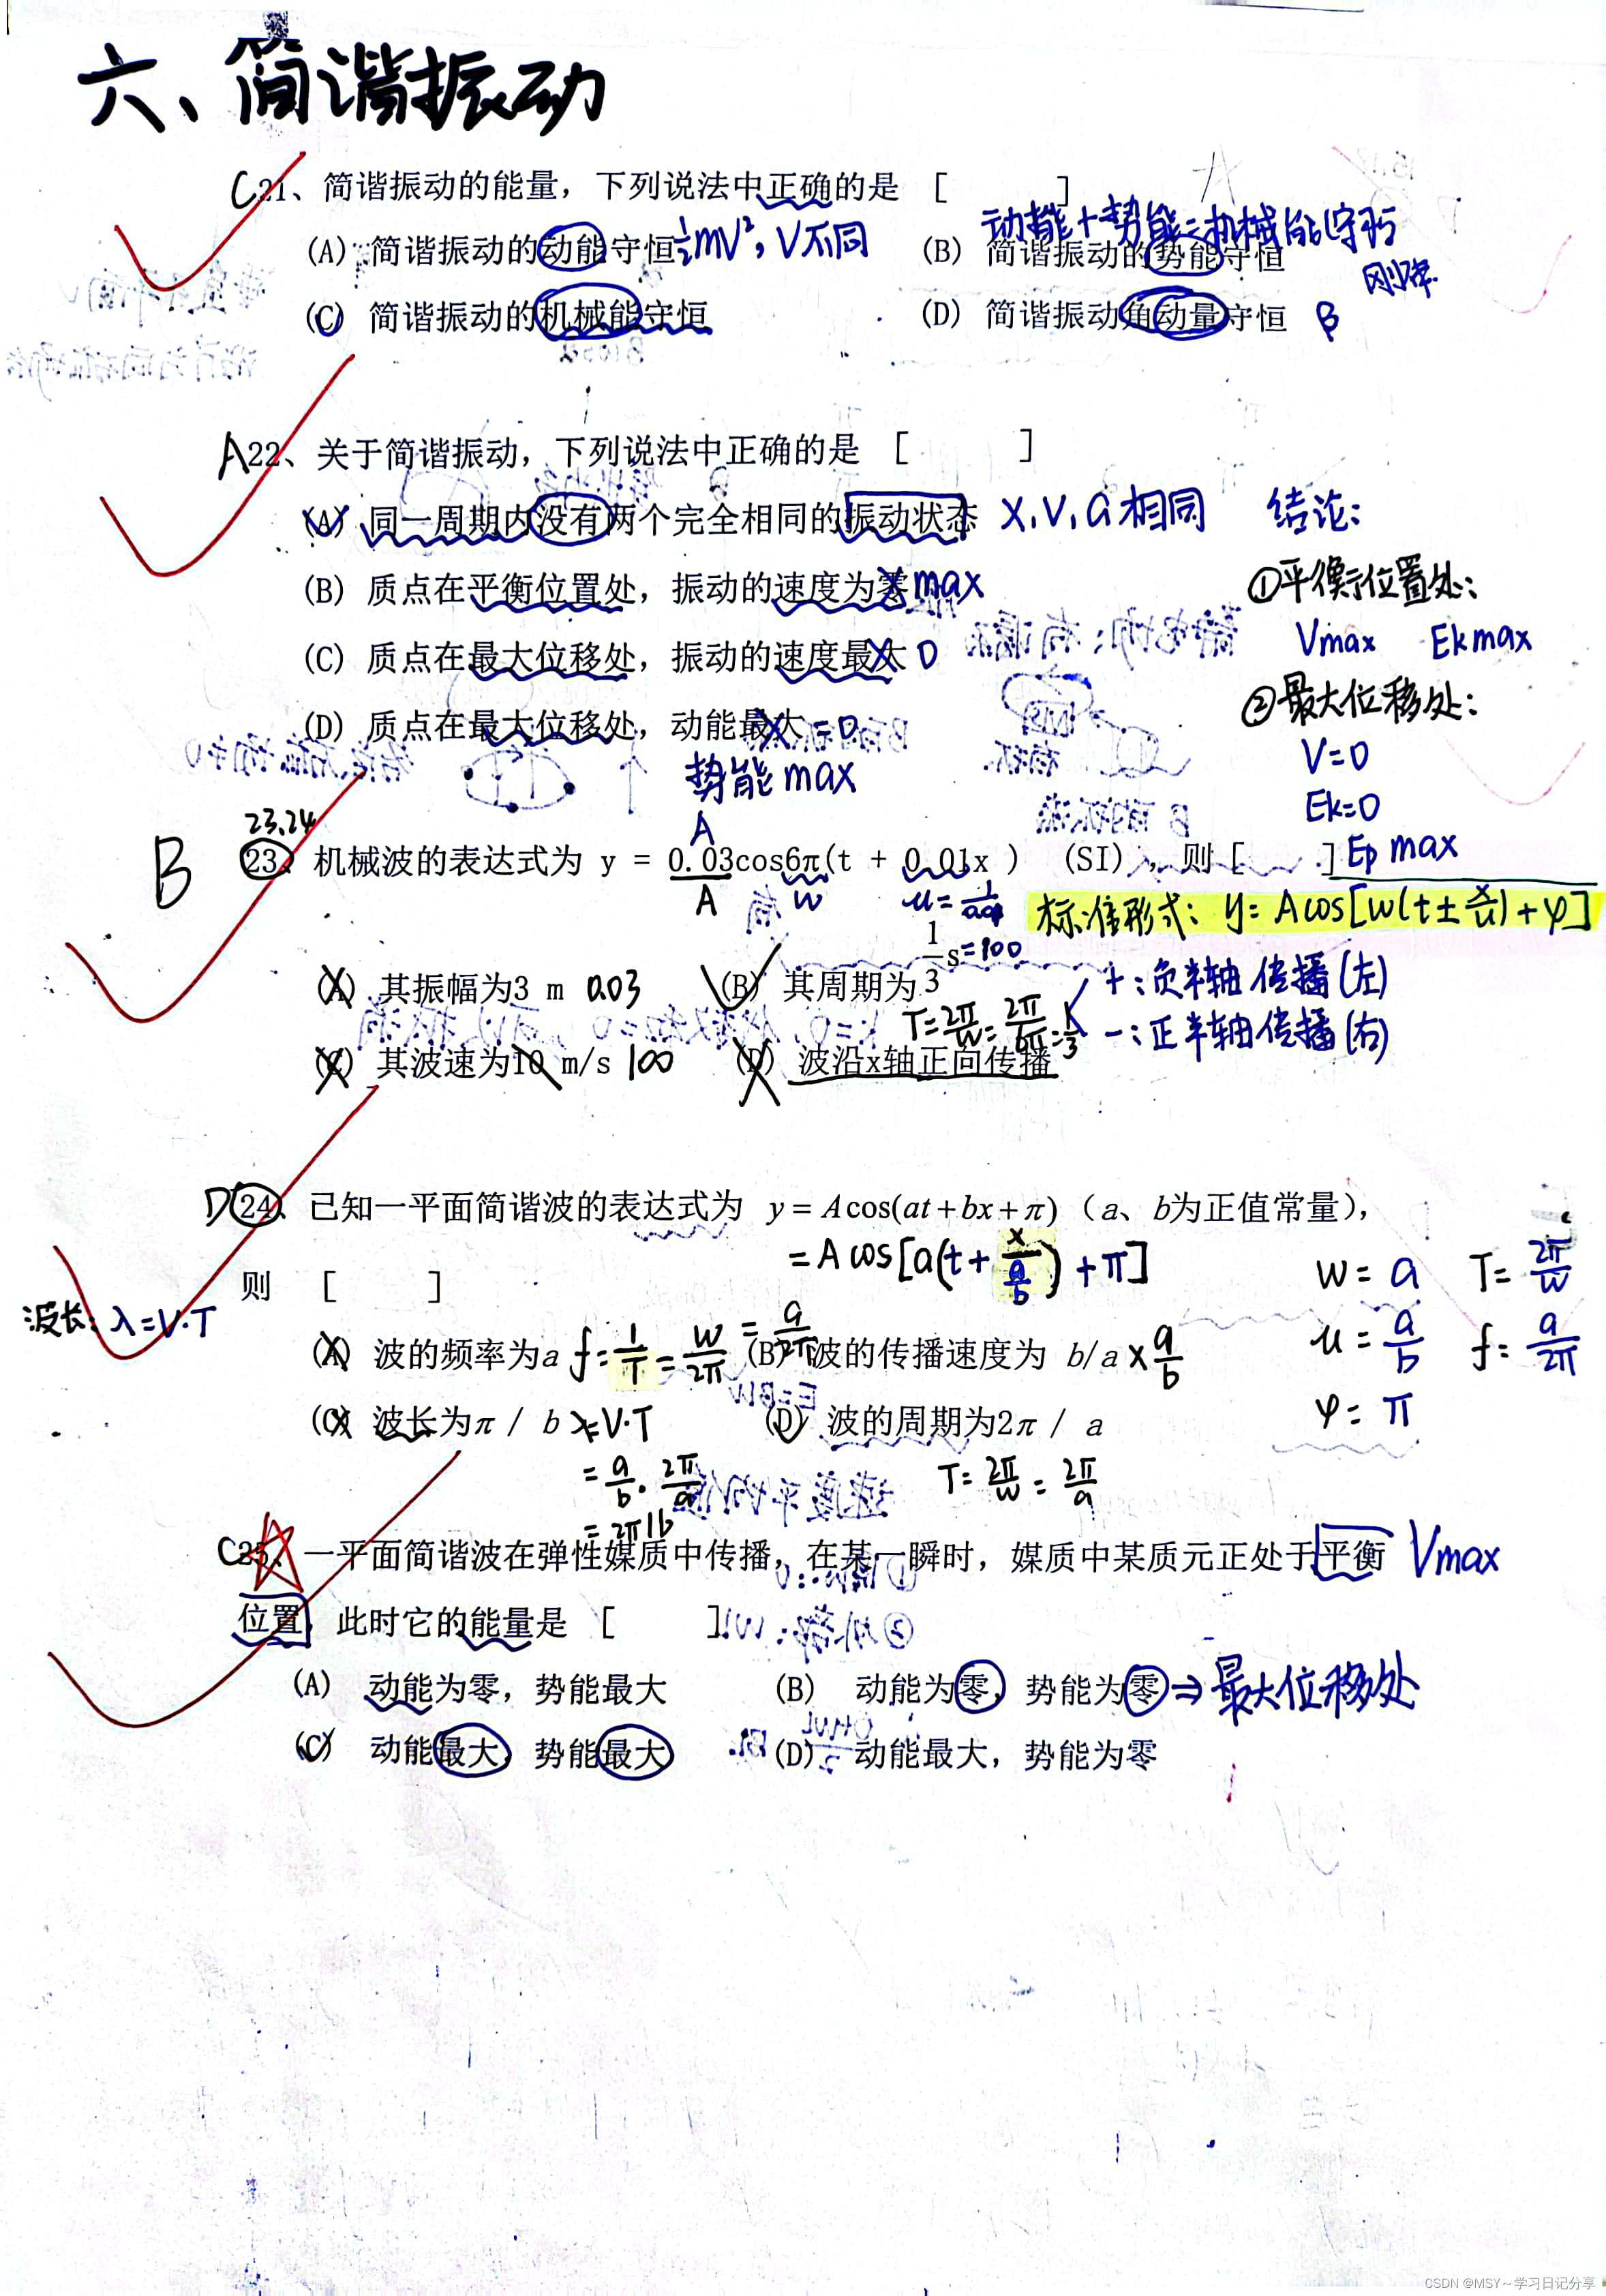 六、简谐振动
C21、简谐振动的能量，下列说法中正确的是 [ ]
动能+势能=机械能守恒
(A) 简谐振动的动能守恒 ½mV², V不同 (B) 简谐振动的势能守恒
刚体
(C) 简谐振动的机械能守恒 (D) 简谐振动角动量守恒 β
A22、关于简谐振动，下列说法中正确的是 [ ]
(A) 同一周期内没有两个完全相同的振动状态 X,V,a相同 结论:
(B) 质点在平衡位置处，振动的速度为零 max ①平衡位置处:
(C) 质点在最大位移处，振动的速度最大 0 Vmax Ekmax
②最大位移处:
(D) 质点在最大位移处，动能最大 =0
V=0
势能max
Ek=0
23.24
A
B 23、机械波的表达式为 y = 0.03cos6π(t + 0.01x ) (SI) ，则 [ ] Ep max
A w u=1/0.01 标准形式: y=Acos[w(t±x/u)+φ]
=100
(A) 其振幅为3 m 0.03 (B) 其周期为 1/3 s +:负半轴传播(左)
T=2π/w=2π/6π=1/3 -:正半轴传播(右)
(C) 其波速为10 m/s 100 (D) 波沿x轴正向传播
D24、已知一平面简谐波的表达式为 y = A cos(at + bx + π)（a、b为正值常量），
=A cos[a(t+x/(a/b))+π] w=a T=2π/w
则 [ ]
波长: λ=V·T
(A) 波的频率为a f=1/T=w/2π=a/2π (B) 波的传播速度为 b/a × a/b u=a/b f=a/2π
(C) 波长为π / b λ=V·T (D) 波的周期为2π / a φ=π
=a/b·2π/a T=2π/w=2π/a
=2π/b
C25、一平面简谐波在弹性媒质中传播，在某一瞬时，媒质中某质元正处于平衡 Vmax
位置，此时它的能量是 [ ]
(A) 动能为零，势能最大 (B) 动能为零，势能为零 ⇒最大位移处
(C) 动能最大，势能最大 (D) 动能最大，势能为零
CSDN @MSY～学习日记分享